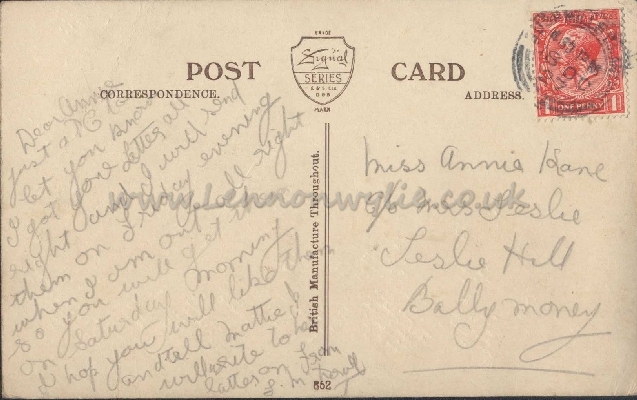 POST CARD
TRADE
Signal
SERIES
MARK
CORRESPONDENCE.
ADDRESS.
ONE PENNY
British Manufacture Throughout.
Dear Annie
just a P.C. to
let you know
I got your letter all
right and I will send
them on Friday evening
when I am out all right
so you will get them
on Saturday morning
I hop you will like them
and tell Mattie I
will write to her
latter on from
Miss Annie Kane
c/o Mrs Leslie
Leslie Hill
Ballymoney
www.Lennonwylie.co.uk
862